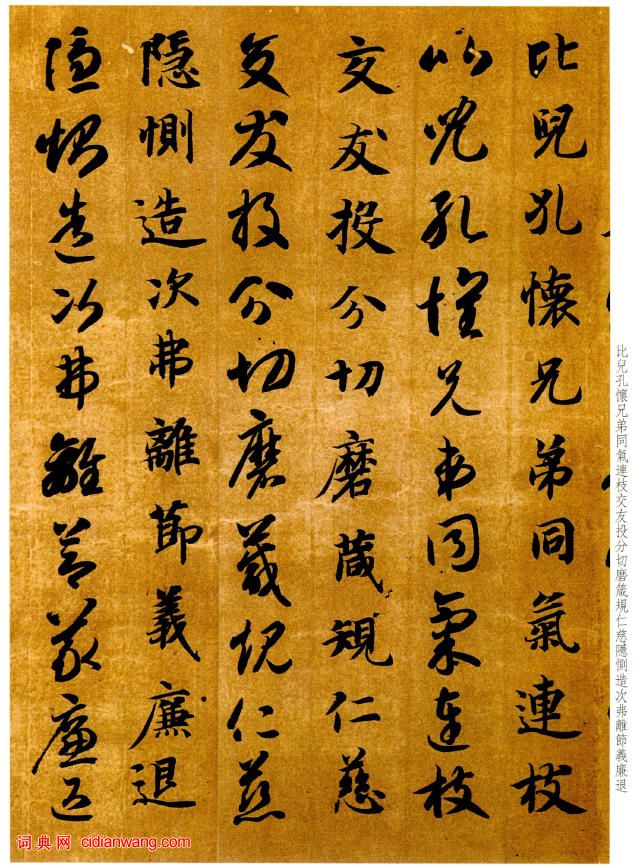 比兒孔懷兄弟同氣連枝
比兒孔懷兄弟同氣連枝
交友投分切磨箴規仁慈
交友投分切磨箴規仁慈
隱惻造次弗離節義廉退
隱惻造次弗離節義廉退
比兒孔懷兄弟同氣連枝交友投分切磨箴規仁慈隱惻造次弗離節義廉退
词典网 cidianwang.com